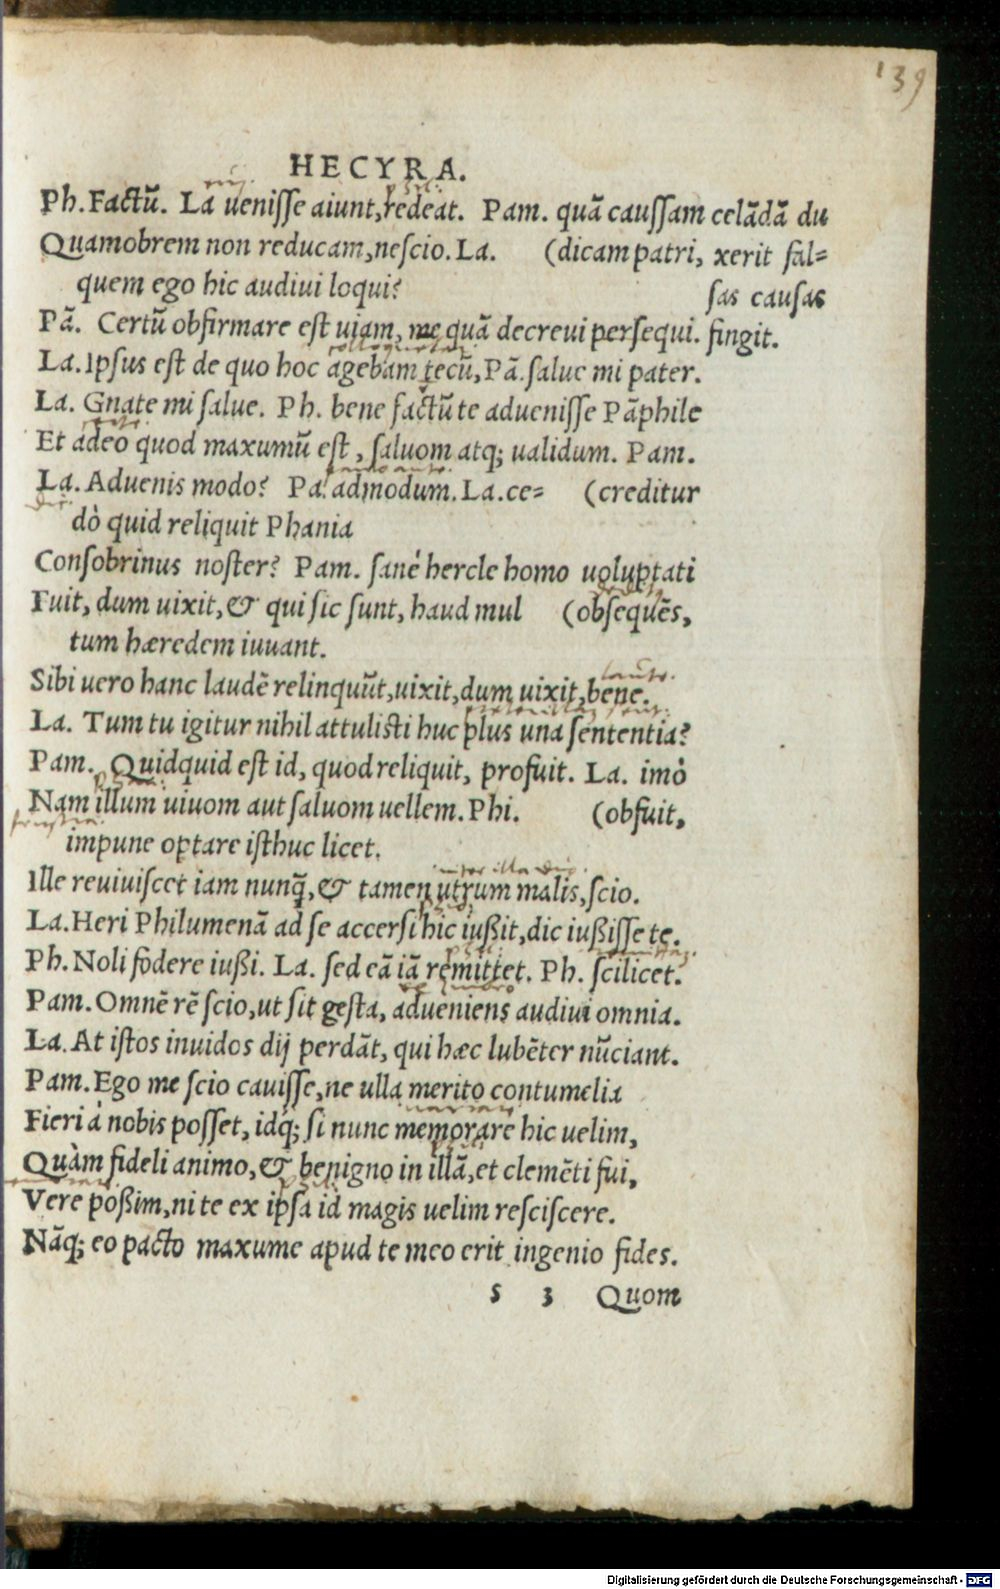 139
HECYRA.
Ph. Factũ. La uenisse aiunt, redeat. Pam. quã caussam celãdã du
Quamobrem non reducam, nescio. La. (dicam patri, xerit fal=
quem ego hic audiui loqui? sas causas
Pã. Certũ obfirmare est uiam, me quã decreui persequi. fingit.
La. Ipsus est de quo hoc agebam tecũ, Pã. salue mi pater.
La. Gnate mi salue. Ph. bene factũ te aduenisse Pãphile
Et adeo quod maxumũ est, saluom atq; ualidum. Pam.
La. Aduenis modo? Pa. admodum. La. ce= (creditur
dò quid reliquit Phania
Consobrinus noster? Pam. sanè hercle homo uoluptati
Fuit, dum uixit, & qui sic sunt, haud mul (obsequẽs,
tum hæredem iuuant.
Sibi uero hanc laudẽ relinquũt, uixit, dum uixit, bene.
La. Tum tu igitur nihil attulisti huc plus una sententia?
Pam. Quidquid est id, quod reliquit, profuit. La. imò
Nam illum uiuom aut saluom uellem. Phi. (obfuit,
impune optare isthuc licet.
Ille reuiuiscet iam nunq̃, & tamen utrum malis, scio.
La. Heri Philumenã ad se accersi hic iußit, dic iußisse te.
Ph. Noli fodere iußi. La. sed eã iã remittet. Ph. scilicet.
Pam. Omnẽ rẽ scio, ut sit gesta, adueniens audiui omnia.
La. At istos inuidos dij perdãt, qui hæc lubẽter nũciant.
Pam. Ego me scio cauisse, ne ulla merito contumelia
Fieri à nobis posset, idq́; si nunc memorare hic uelim,
Quàm fideli animo, & benigno in illã, et clemẽti fui,
Vere poßim, ni te ex ipsa id magis uelim resciscere.
Nãq; eo pacto maxume apud te meo erit ingenio fides.
s 3 Quom
Digitalisierung gefördert durch die Deutsche Forschungsgemeinschaft - DFG